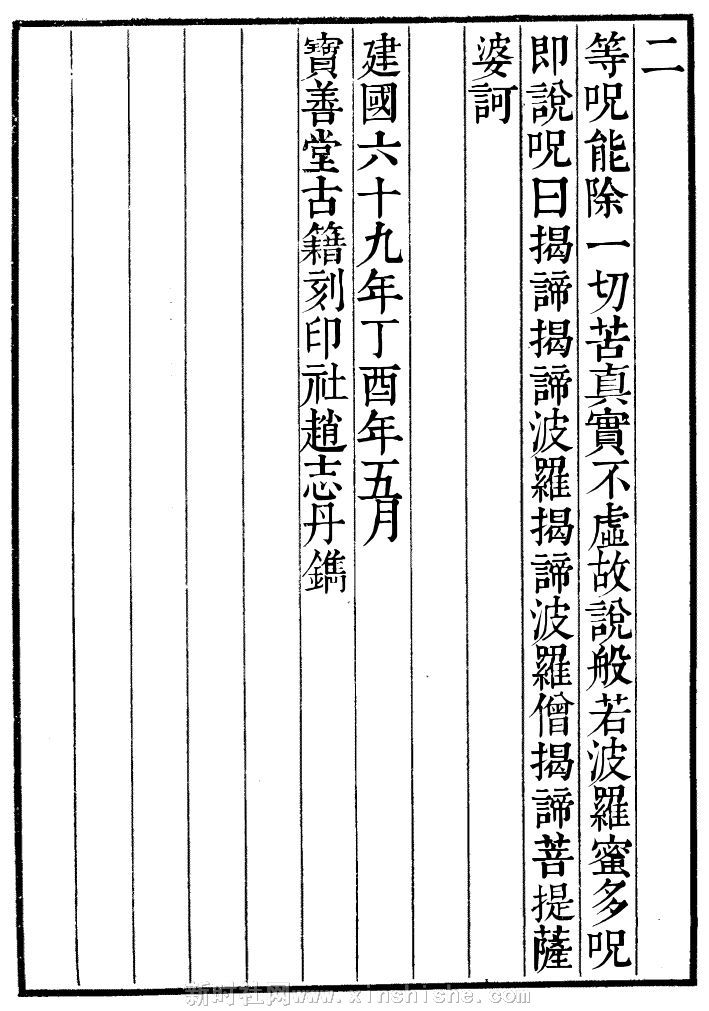 二
等呪能除一切苦真實不虛故說般若波羅蜜多呪
即說呪曰揭諦揭諦波羅揭諦波羅僧揭諦菩提薩
婆訶
建國六十九年丁酉年五月
寶善堂古籍刻印社趙志丹鐫
新时社网www.xinshishe.com